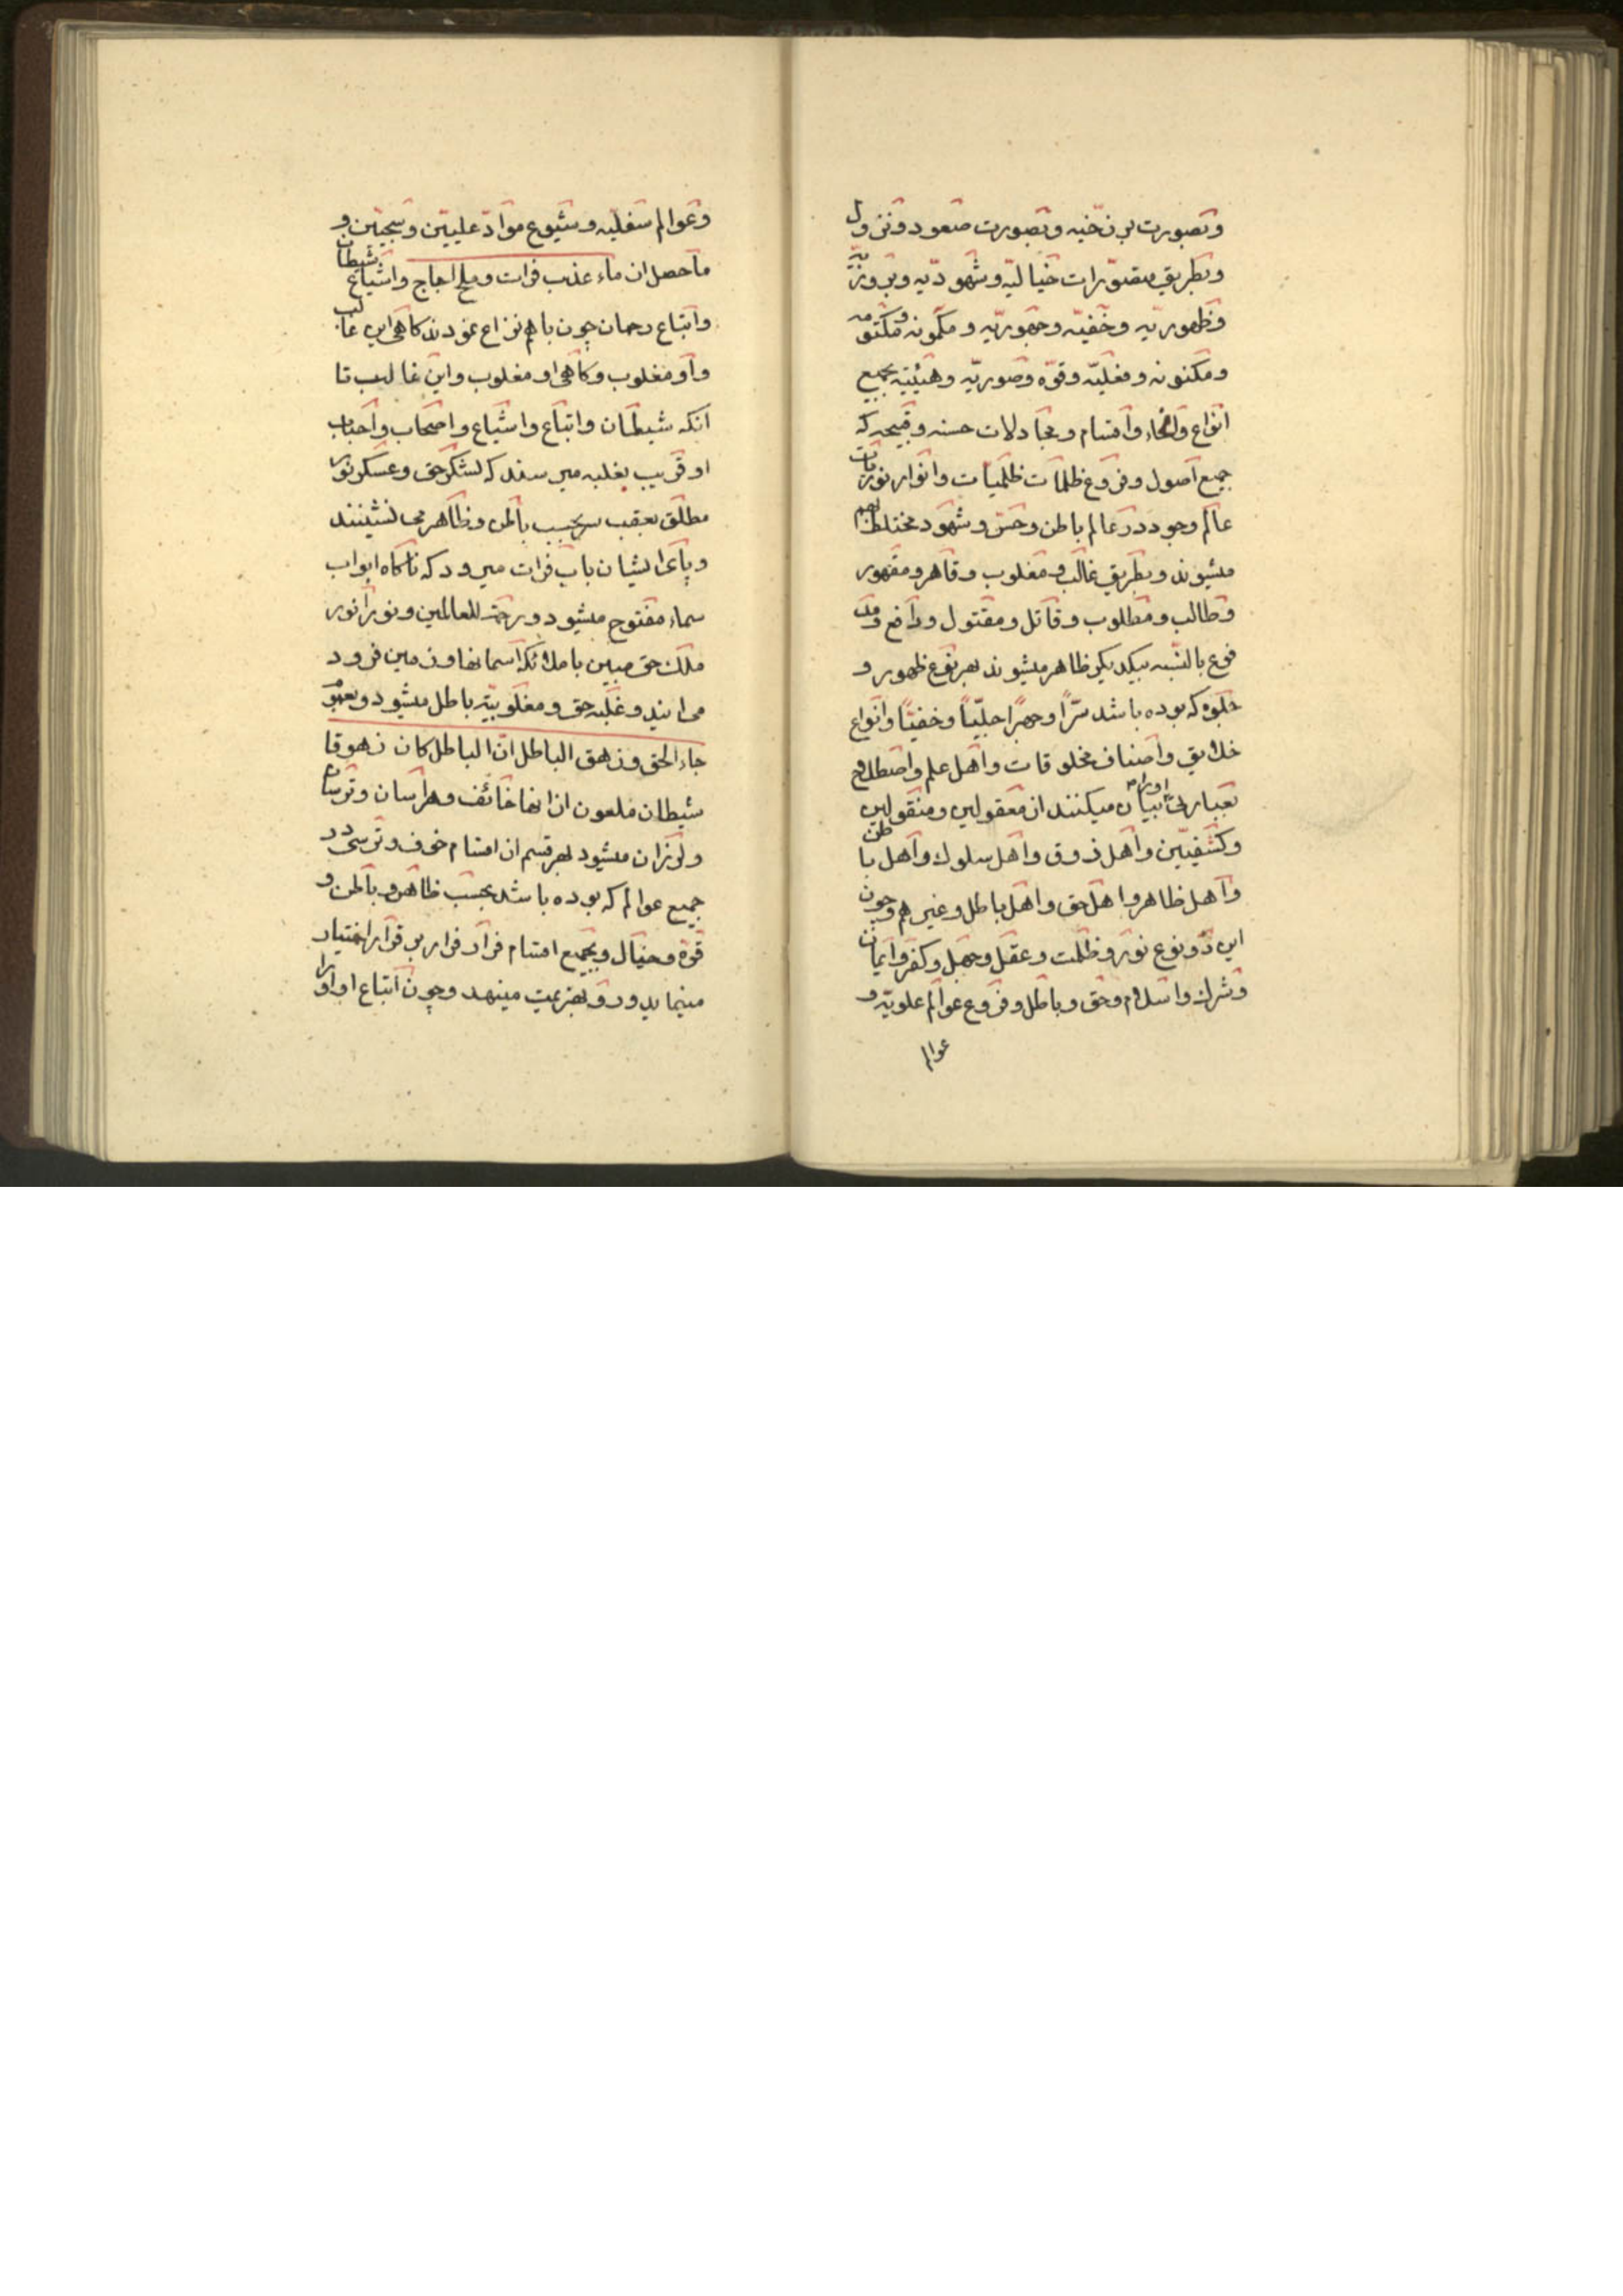 وبصورت برزخیه وبصورت صعود ونزول
وبطریق متصورات خیالیه وشهودیه وبروزیه
وظهوریه وخفیه وجهوریه ومکمونه ومکتومه
ومکنونه وفعلیه وقوه وصوریه وهیئتیه بجمیع
انواع وانحاء واقسام ومجادلات حسنه وقبیحه که
جمیع اصول وفروع ظلمات ظلمیات وانوار نوریات
عالم وجود در عالم باطن وحس وشهود مختلط بهم
میشوند وبطریق غالب ومغلوب وقاهر ومقهور
وطالب ومطلوب وقاتل ومقتول ودافع ومد
فوع بالنسبه بیکدیکر ظاهر میشوند بهر نوع ظهور و
جلوه که بوده باشد سرّاً وجهراً جلیّاً وخفیّاً وانواع
خلایق واصناف مخلوقات واهل علم واصطلاح
بعبارتی اورا بیان میکنند از معقولین ومنقولین
وکشفیّین واهل ذوق واهل سلوک واهل باطن
واهل ظاهر واهل حق واهل باطل وغیرهم وچون
این دو نوع نور وظلمت وعقل وجهل وکفر وایمان
وشرک واسلام وحق وباطل وفروع عوالم علویه و
عوالم
وعوالم سفلیه وشیوع مواد علیین وسجین و
ماحصل از ماء عذب فرات وملح اجاج واشیاع شیطان
واتباع رحمان چون باهم نزاع نمودند کاهی این غالب
واو مغلوب وکاهی او مغلوب واین غالب تا
انکه شیطان واتباع واشیاع واصحاب واحباب
او قریب بغلبه میرسند که لشکر حق وعسکر نور
مطلق بعقب سر بحسب باطن وظاهر می نشینند
وپای ایشان باب فرات میرود که ناکاه ابواب
سماء مفتوح میشود ورحمت للعالمین ونور انور
ملک حق مبین با ملائکه اسمانها وزمین فرود
می ایند وغلبه حق ومغلوبیّة باطل میشود وبعبو
جاء الحق وزهق الباطل انّ الباطل کان زهوقا
شیطان ملعون از انها خائف وهراسان وترسان
ولرزان میشود بهر قسم از اقسام خوف وترسی در
جمیع عوالم که بوده باشد بحسب ظاهر وباطن و
قوّه وخیال وبجمیع اقسام فرار فرار بر قرار اختیار
مینماید ورو بهزیمت مینهد وچون اتباع او اورا